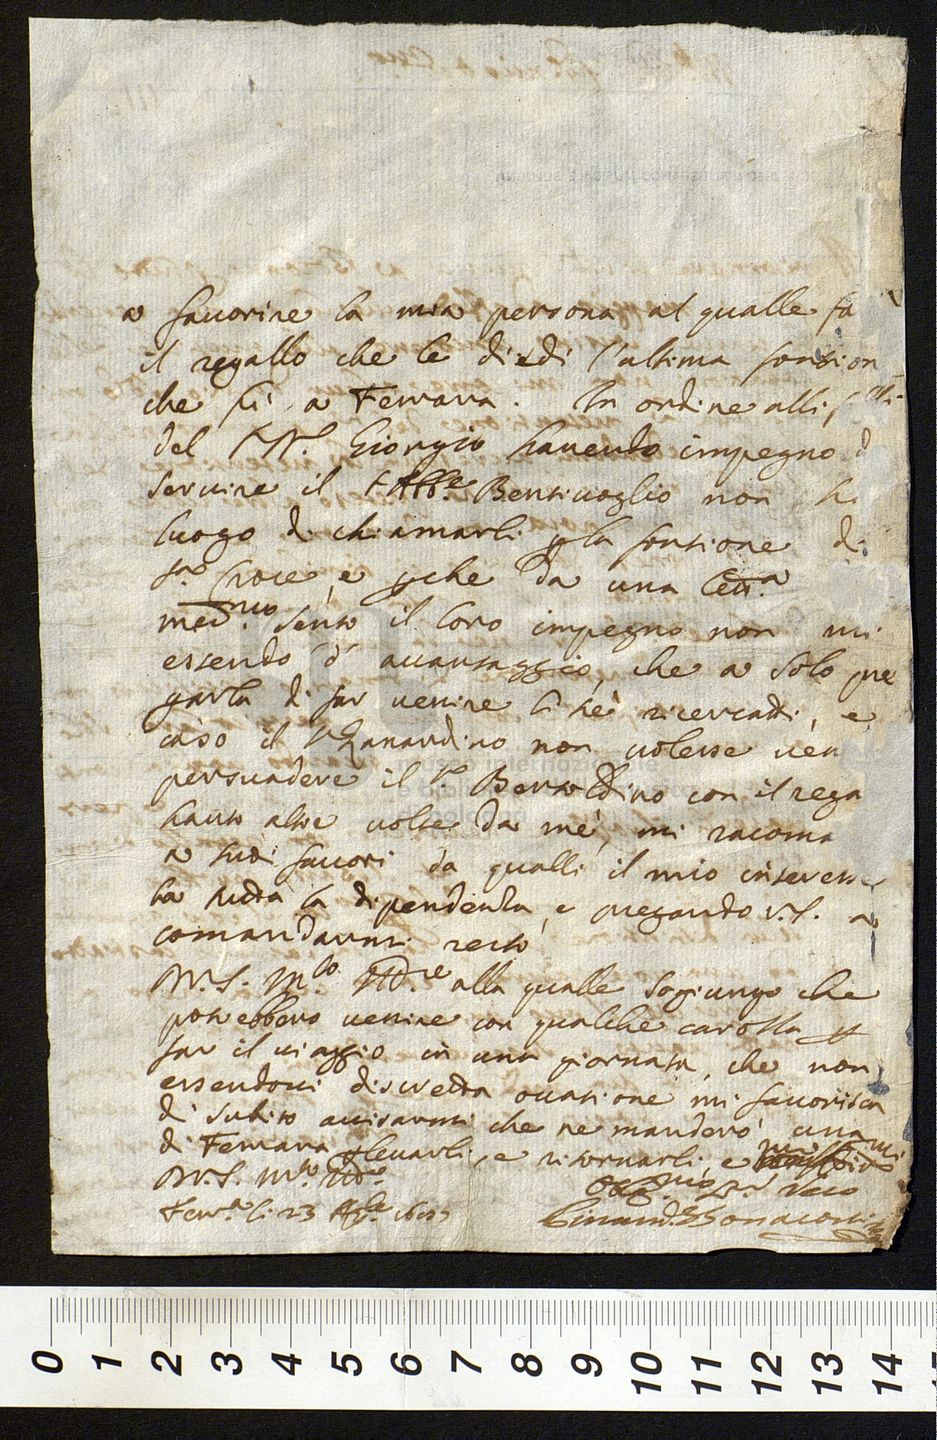 a favorire la mia persona al qualle fa
il regallo che le diedi l'ultima fontion
che fù a Ferrara. In ordine alli
del Sr. Giorgio havendo impegno d
servire il Abbe. Bentivoglio non h
luogo di chiamarli p la fontione di
Sta. Croce, e pche da una
med.mo sento il loro impegno non mi
essendo d' avantaggio, che a solo pre
garla di far venire li ricercatti, e
caso il Sr Zanardino non volesse ven
persuadere il Sr. Bertoldino con il rega
hauto altre volte da mè, mi racoma
a suoi favori da qualli il mio interesse
ha tutta la dipendenta, e pregando V.S. a
comandarmi resto
Di V.S. M.to alla qualle sogiungo che
potrebbero venire con qualche carozza p
far il viaggio in una giornata, che non
essendovi discretta ocatione mi favorisca
di subito avisarmi che ne manderò una
di Ferrara p levarli, e ritornarli, e
Di V.S. M.to
Ferr.a li 23
museo internazionale